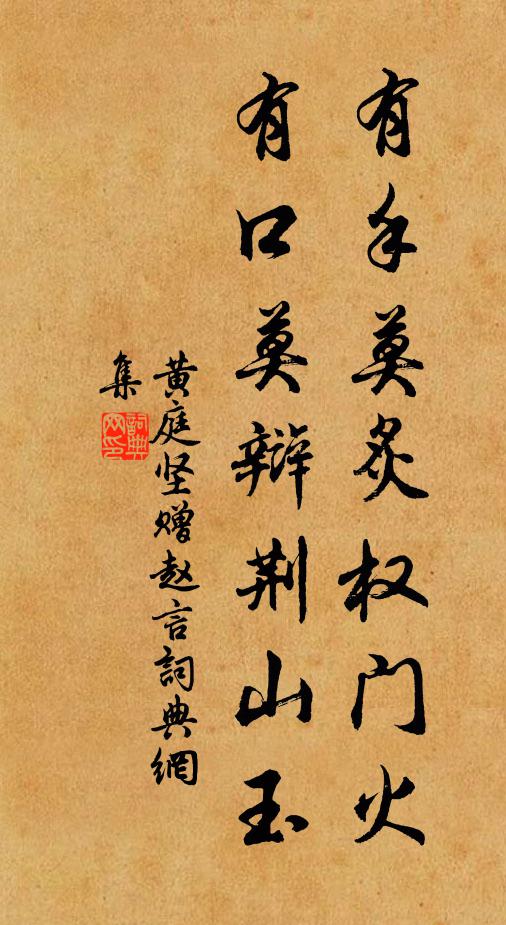 有手莫炙权门火
有口莫辩荆山玉
黄庭坚赠赵言詞典網
集
詞典
网印